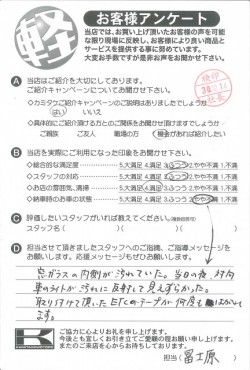 軽
お客様アンケート
当店では、お買い上げ頂いたお客様の声を可能
な限り現場に反映し、お客様により良い商品と
サービスを提供する事に努めています。
大変お手数ですが是非お声をお聞かせ下さい。
Ⓐ 当店はご紹介を大切にしております。
ご紹介キャンペーンについてお聞かせ下さい。
◇カミタケご紹介キャンペーンのご説明はありましたでしょうか
はい いいえ
◇具体的にご紹介頂ける方とのご関係をお聞かせ頂けますでしょうか
ご親族 ご友人 職場の方 機会があれば紹介したい
Ⓑ 当店を実際にご利用になった印象をお聞かせ下さい。
◇総合的な満足度 5.大満足 4.満足 3.ふつう 2.やや不満 1.不満
◇スタッフの対応 5.大満足 4.満足 3.ふつう 2.やや不満 1.不満
◇お店の雰囲気、清掃 5.大満足 4.満足 3.ふつう 2.やや不満 1.不満
◇納車時のお車の状態 5.大満足 4.満足 3.ふつう 2.やや不満 1.不満
Ⓒ 評価したいスタッフがいれば教えてください。
スタッフ名( )( )
Ⓓ 担当させて頂きましたスタッフへのご指摘、ご指導メッセージを
お願いします。応援メッセージもぜひお願いします。
窓ガラスの内側が汚れていた。当日の夜、対向
車のライトが汚れに反射して見えずらかった。
取り付けて頂いたETCのテープが何度も
ます。
K
ご協力に心よりお礼を申し上げます。
今後とも宜しくお引き立てご愛顧の程お願い申し上げます。
またのご来店を心からお待ちしております。
担当( 冨士原 )